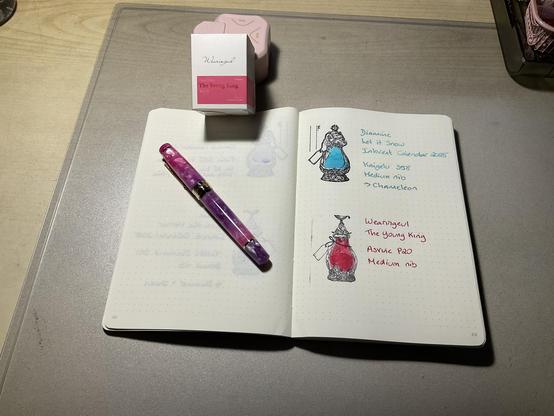 Wearingeul
The Young King
Diamine
Let it Snow
Inkvent Calendar 2025
Kaigelu 356
Medium nib
→ Chameleon
Wearingeul
The Young King
Asvine P20
Medium nib